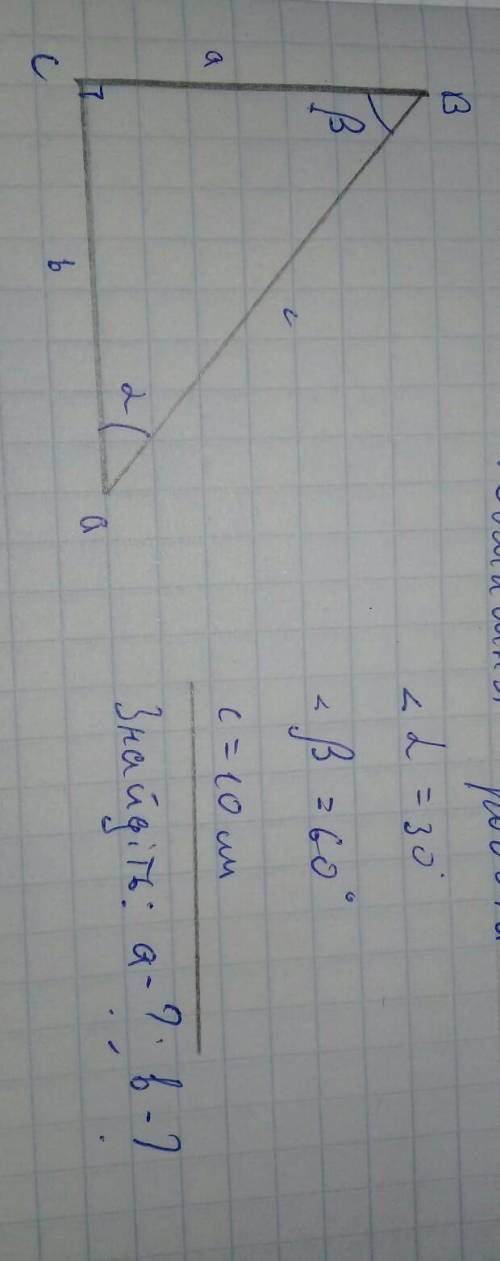 B
a
β
c
C
b
α
a
< α = 30°
< β = 60°
c = 10 см
Знайдіть: a - ?; b - ?